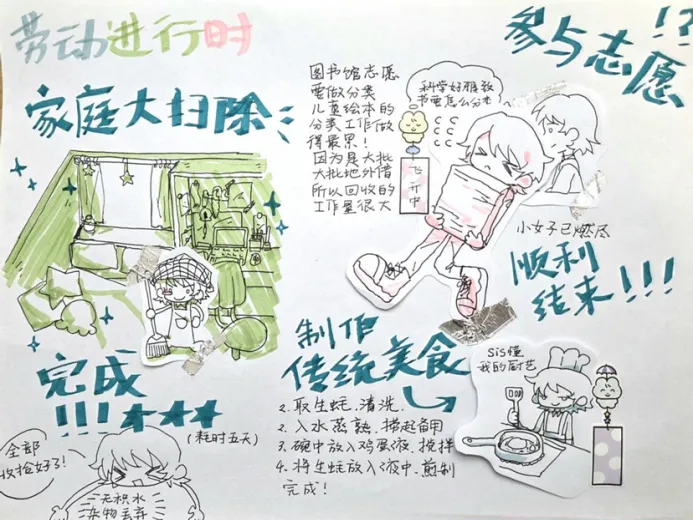 劳动进行时
家庭大扫除
完成
!!!
(耗时五天)
全部
收拾好了!
无积水
杂物丢弃
图书馆志愿
要做分类
儿童绘本的
分类工作做
得最累!
因为是大批
大批地外借
所以回收的
工作量很大
参与志愿
!?
书要怎么分
小女子已燃尽
顺利
结束!!!
制作
传统美食
2.取生蚝.清洗.
2.入水蒸熟.捞起备用
3.碗中放入鸡蛋液.搅拌
4.将生蚝放入液中.煎制
完成!
sis懂
我的厨艺